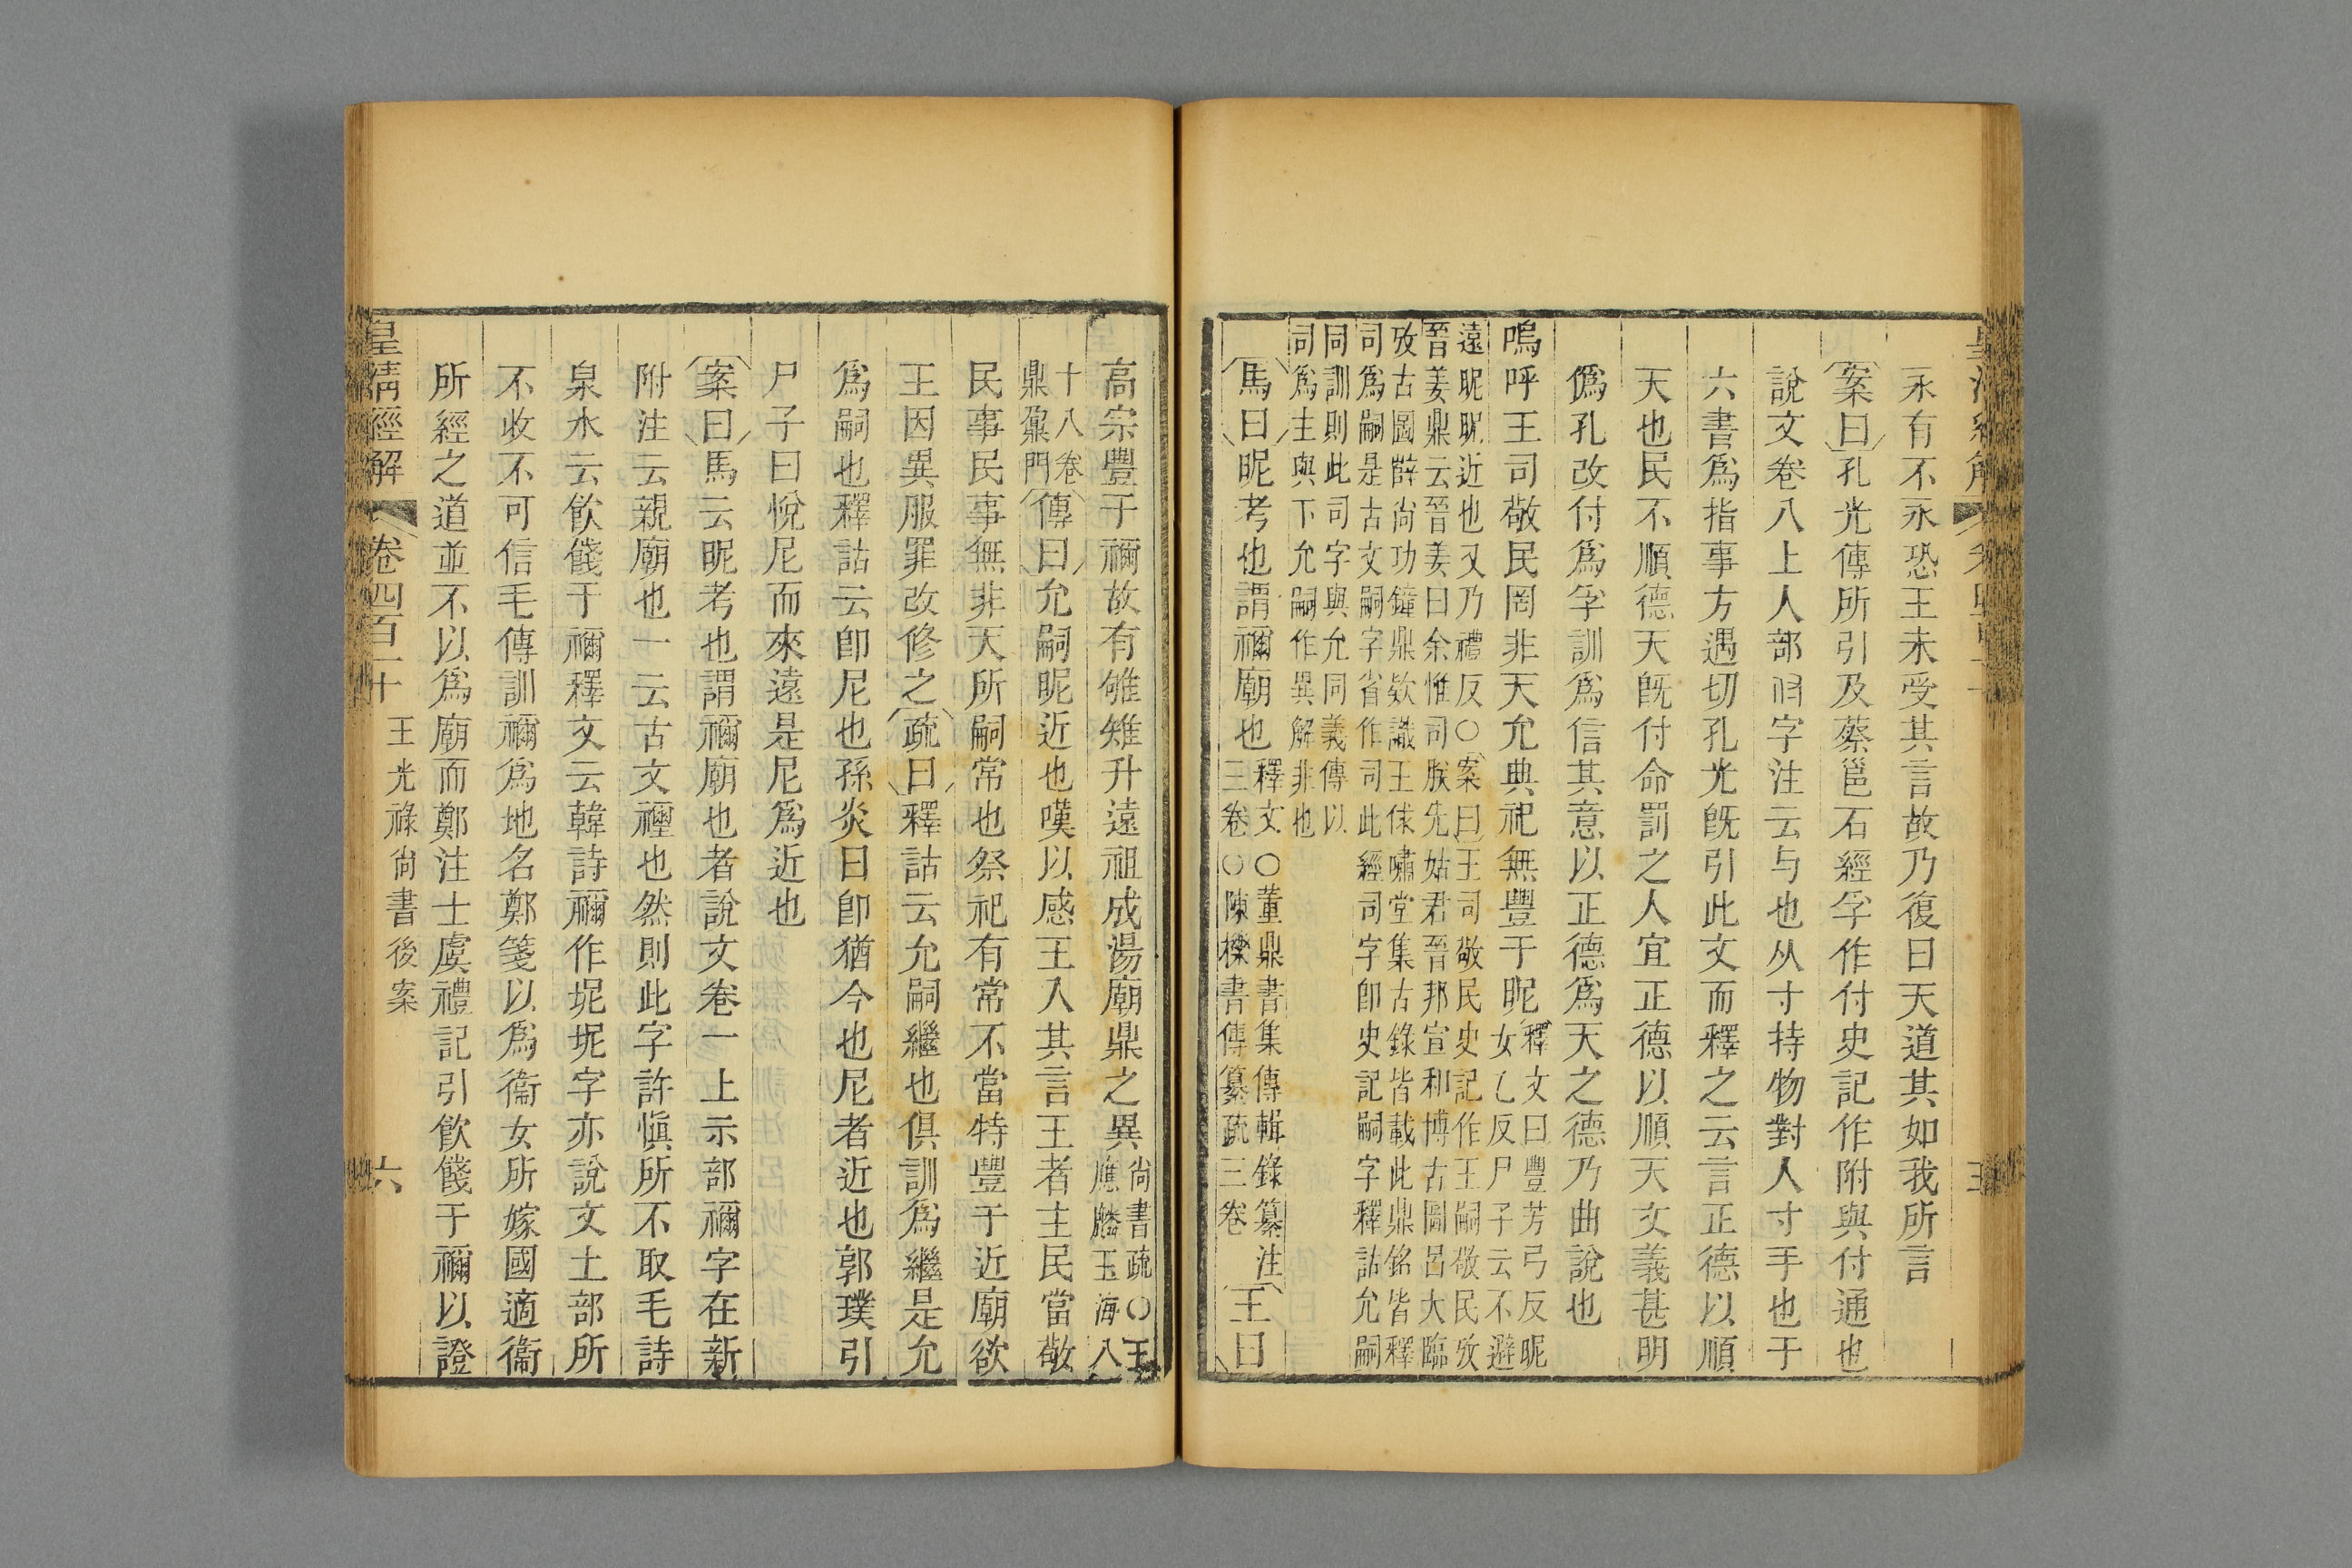 永有不永恐王未受其言故乃復曰天道其如我所言
案曰孔光傳所引及蔡邕石經孚作付史記作附與付通也
說文卷八上人部付字注云与也从寸持物對人寸手也于
六書爲指事方遇切孔光旣引此文而釋之云言正德以順
天也民不順德天旣付命罰之人宜正德以順天文義甚明
僞孔改付爲孚訓爲信其意以正德爲天之德乃曲說也
嗚呼王司敬民罔非天允典祀無豐于昵釋文曰豐芳弓反昵
女乚反尸子云不避
遠昵昵近也又乃禮反○案曰王司敬民史記作王嗣敬民攷
晉姜鼎云晉姜曰余惟司朕先姑君晉邦宣和博古圖呂大臨
攷古圖薛尚功鐘鼎欵識王俅嘯堂集古錄皆載此鼎銘皆釋
司爲嗣是古文嗣字省作司此經司字卽史記嗣字釋詁允嗣
同訓則此司字與允同義傳以
司爲主與下允嗣作異解非也
馬曰昵考也謂禰廟也釋文○董鼎書集傳輯錄纂注
三卷○陳櫟書傳纂疏三卷王曰
高宗豐于禰故有雊雉升遠祖成湯廟鼎之異尚書疏○王
應麟玉海八
十八卷
鼎鼐門傳曰允嗣昵近也嘆以感王入其言王者主民當敬
民事民事無非天所嗣常也祭祀有常不當特豐于近廟欲
王因異服罪改修之疏曰釋詁云允嗣繼也俱訓爲繼是允
爲嗣也釋詁云卽尼也孫炎曰卽猶今也尼者近也郭璞引
尸子曰悅尼而來遠是尼爲近也
案曰馬云昵考也謂禰廟也者說文卷一上示部禰字在新
附注云親廟也一云古文䙩也然則此字許愼所不取毛詩
泉水云飮餞于禰釋文云韓詩禰作坭坭字亦說文土部所
不收不可信毛傳訓禰爲地名鄭箋以爲衞女所嫁國適衞
所經之道並不以爲廟而鄭注士虞禮記引飮餞于禰以證
皇清經解 卷四百二十 王光祿尚書後案 六